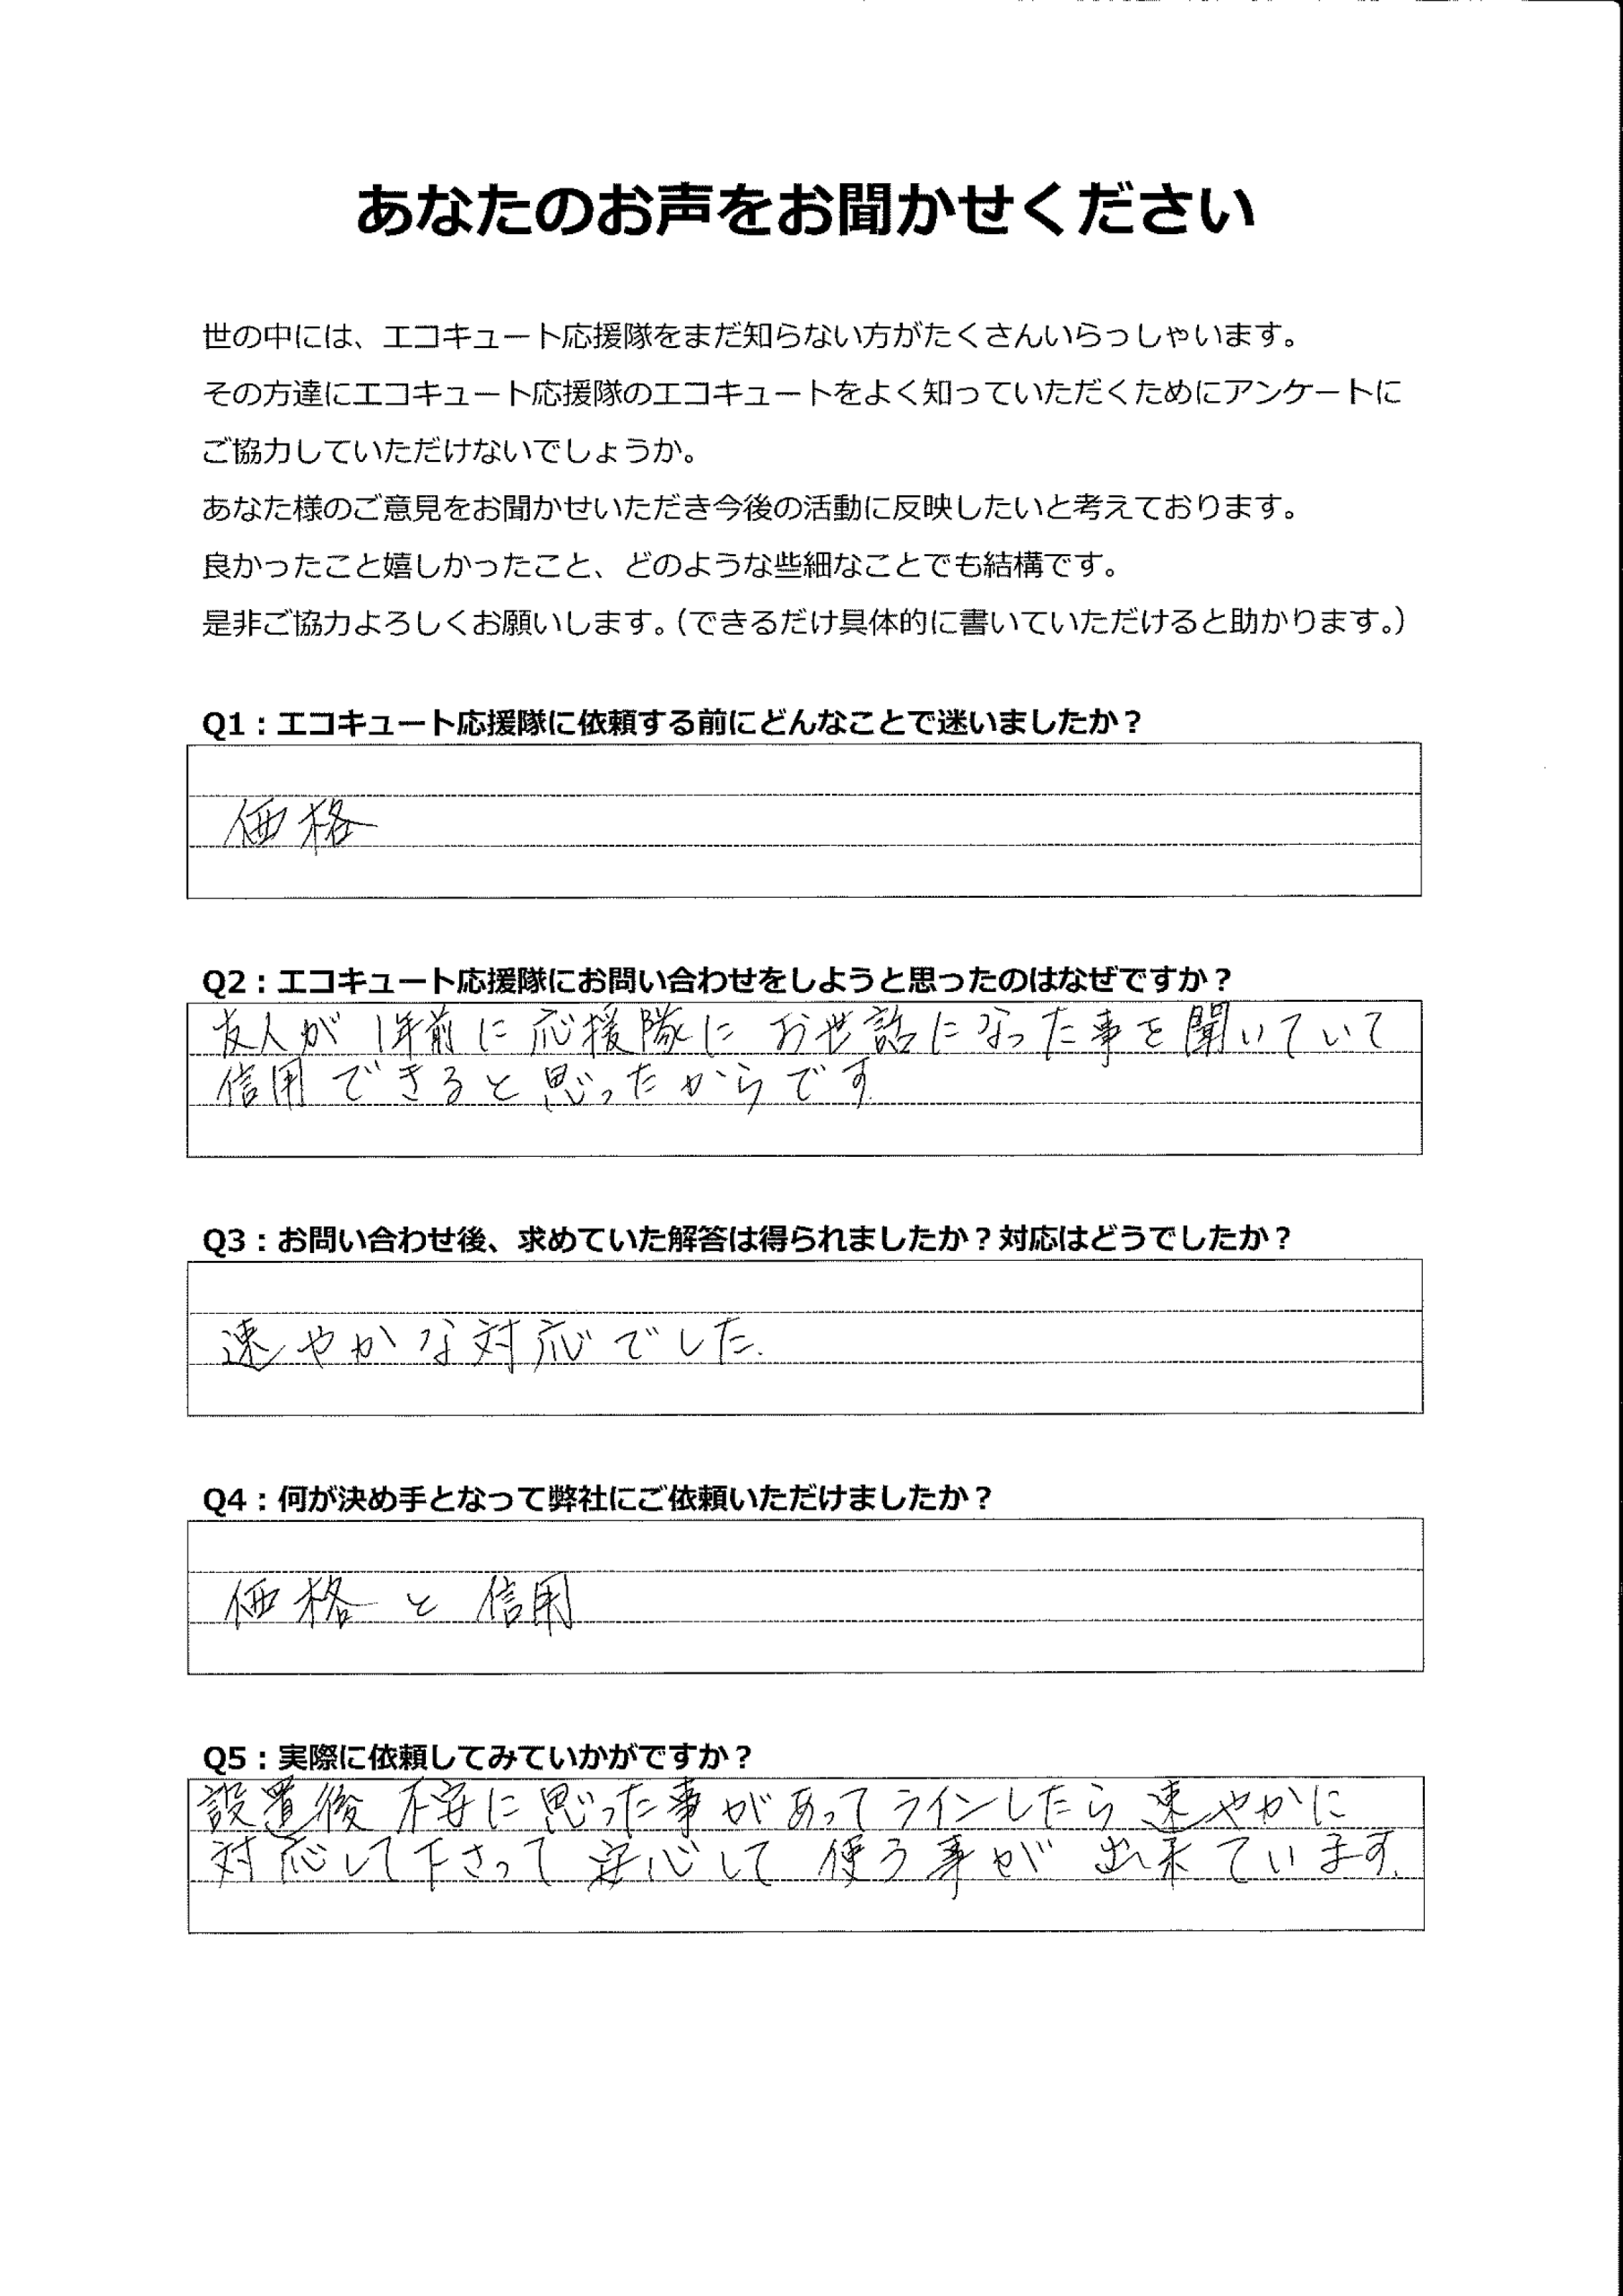 あなたのお声をお聞かせください
世の中には、エコキュート応援隊をまだ知らない方がたくさんいらっしゃいます。
その方達にエコキュート応援隊のエコキュートをよく知っていただくためにアンケートに
ご協力していただけないでしょうか。
あなた様のご意見をお聞かせいただき今後の活動に反映したいと考えております。
良かったこと嬉しかったこと、どのような些細なことでも結構です。
是非ご協力よろしくお願いします。（できるだけ具体的に書いていただけると助かります。）
Q1：エコキュート応援隊に依頼する前にどんなことで迷いましたか？
価格
Q2：エコキュート応援隊にお問い合わせをしようと思ったのはなぜですか？
友人が1年前に応援隊にお世話になった事を聞いていて
信用できると思ったからです.
Q3：お問い合わせ後、求めていた解答は得られましたか？対応はどうでしたか？
速やかな対応でした.
Q4：何が決め手となって弊社にご依頼いただけましたか？
価格と信用
Q5：実際に依頼してみていかがですか？
設置後不安に思った事があってラインしたら速やかに
対応して下さって安心して使う事が出来ています.